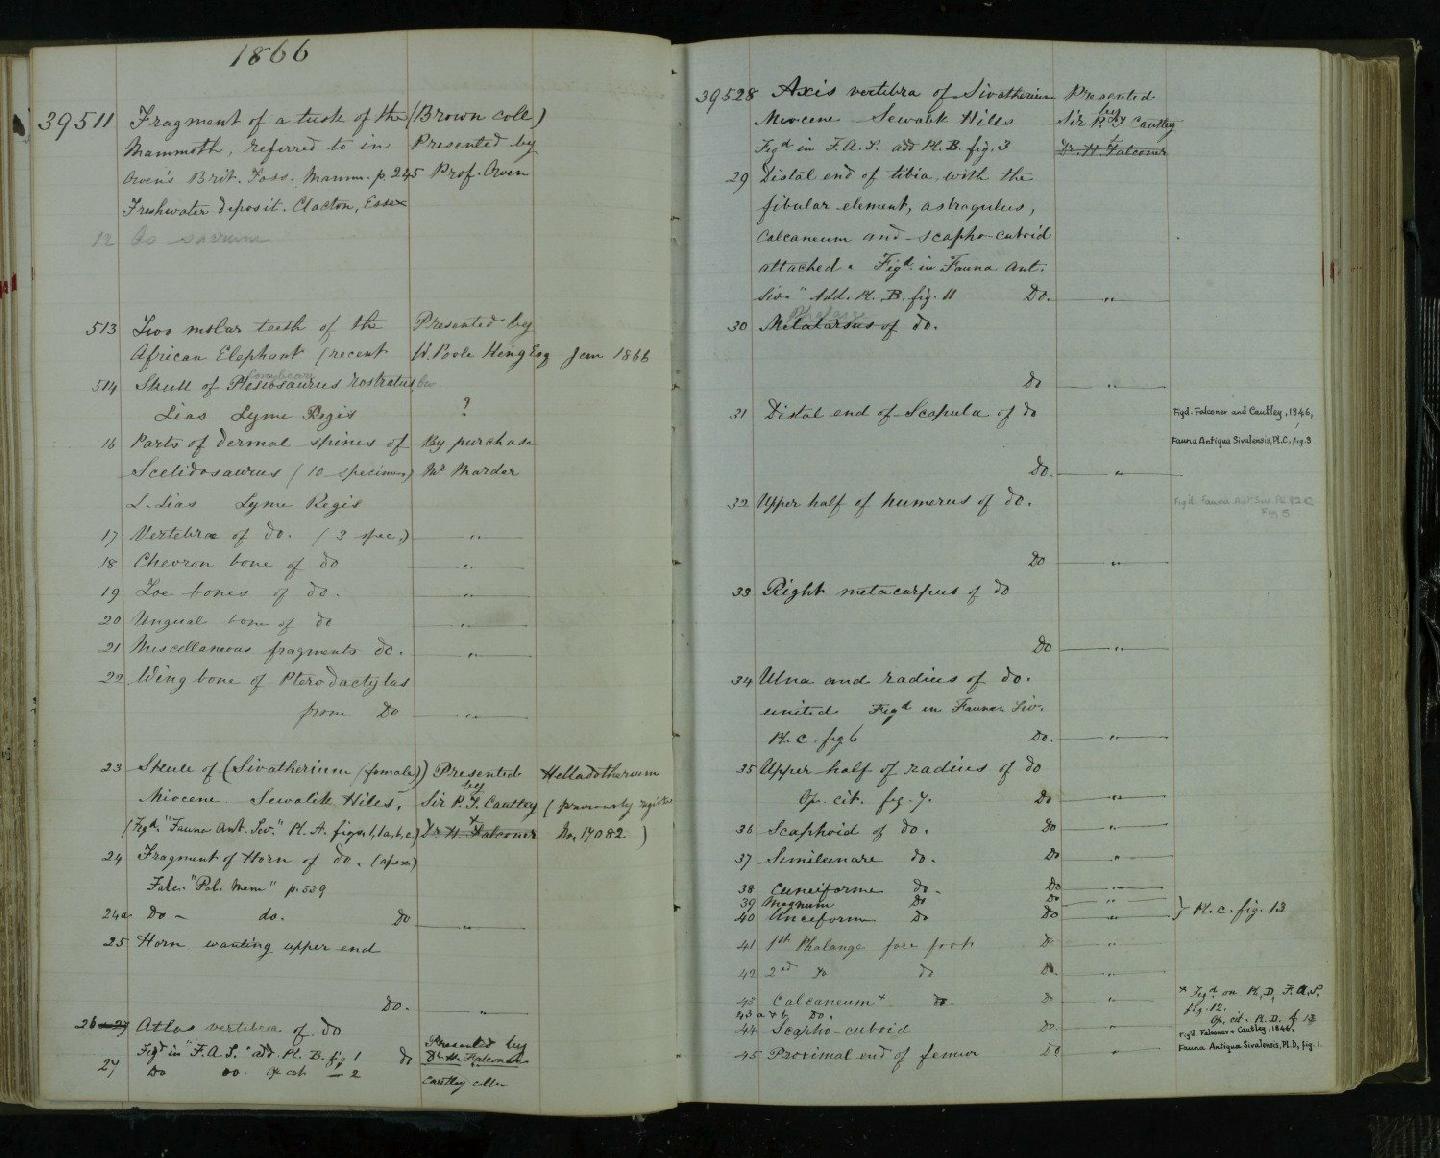 1866
39511 Fragment of a tusk of the (Brown coll)
Mammoth, referred to in Presented by
Owen's Brit. Foss. Mamm. p. 245 Prof. Owen
Freshwater deposit. Clacton, Essex
12 Os sacrum
513 Two molar teeth of the Presented by
African Elephant (recent W. Poole Heng Esq Jan 1866
conybeari
514 Skull of Plesiosaurus rostratus
Lias Lyme Regis ?
16 Parts of dermal spines of By purchase
Scelidosaurus (10 specimens) Mr Marder
L. Lias Lyme Regis
17 Vertebræ of do. (3 spec.) "
18 Chevron bone of do "
19 Toe bones of do. "
20 Ungual bone of do "
21 Miscellaneous fragments do. "
22 Wing bone of Pterodactylus
from Do "
23 Skull of (Sivatherium (female)) Presented Helladotherium
by
Miocene Sewalik Hills, Sir P. T. Cautley (previously regist
(Figd. "Fauna Ant. Siv." Pl. A. figs. 1, 1a, b, c) Dr H. Falconer No. 17082 )
24 Fragment of Horn of do. (apex)
Falc. "Pal. Mem" p. 539
24a Do - do. Do "
25 Horn wanting upper end
Do. "
26-27 Atlas vertebra of do
Presented by
Figd in "F.A.S." add. Pl. B. fig 1 do Dr. H. Falconer
27 Do do. op cit — 2 Cautley colln
39528 Axis vertebra of Sivatherium Presented
by
Miocene Sewalik Hills Sir P. T. Cautley
Figd in F.A.S. add Pl. B. fig. 3 Dr. H. Falconer
29 Distal end of tibia, with the
fibular element, astragulus,
Calcaneum and scapho-cuboid
attached. Figd. in Fauna Ant.
Siv." Add. Pl. B. fig. 11 Do. "
30 Metatarsus of do.
Do "
31 Distal end of Scapula of do Figd. Falconer and Cautley, 1846,
Fauna Antiqua Sivalensis, Pl. C, fig. 3
Do. "
32 Upper half of humerus of do. Figd Fauna Ant Siv Pl 92 C
Fig 5
Do "
33 Right metacarpus of do
Do "
34 Ulna and radius of do.
united Figd in Fauna Siv.
Pl. C. fig 6 Do. "
35 Upper half of radius of do
Op. cit. fig. 7. Do "
36 Scaphoid of do. Do "
37 Semilunare do. Do "
38 Cuneiforme do - Do "
39 Magnum Do Do "
40 Unciform Do Do " } Pl. C. fig. 13
41 1st Phalange fore foot D "
42 2nd do do Do. "
43 Calcaneum + do D " × Figd on Pl. D, F.A.S,
fig. 12.
43 a + b Do. Op. cit. Pl. D. f. 12
44 Scapho-cuboid Do. " Figd Falconer + Cautley, 1846.
45 Proximal end of femur Do " Fauna Antiqua Sivalensis, Pl. D, fig. 1.